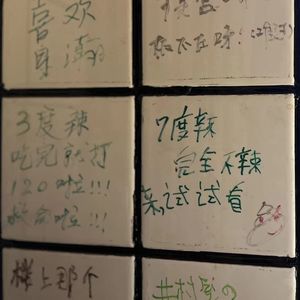 喜欢
3度辣
吃完就打
120啦!!!
救命啦!!!
7度辣
完全不辣
来试试看
楼上那个
井村屋の